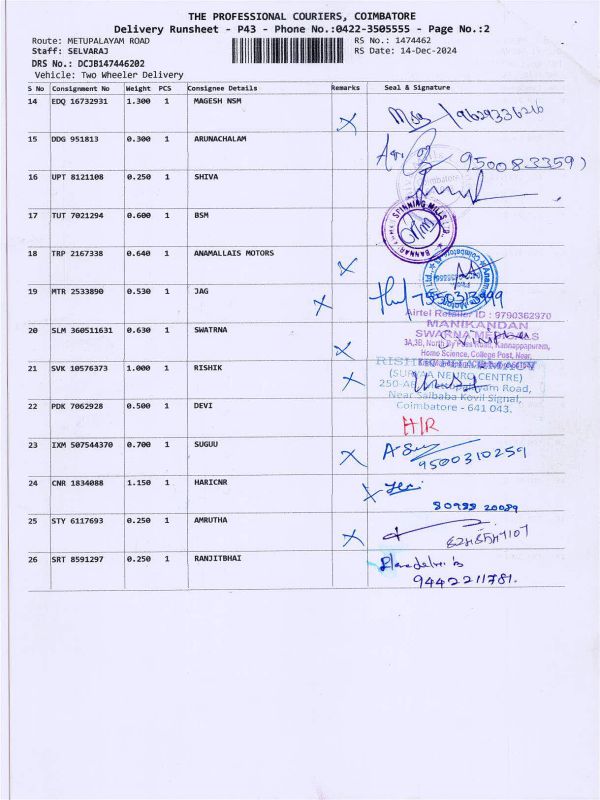 THE PROFESSIONAL COURIERS, COIMBATORE
Delivery Runsheet - P43 - Phone No.:0422-3505555 - Page No.:2
Route: METUPALAYAM ROAD RS No.: 1474462
Staff: SELVARAJ RS Date: 14-Dec-2024
DRS No.: DCJB147446202
Vehicle: Two Wheeler Delivery
S No Consignment No Weight PCS Consignee Details Remarks Seal & Signature
14 EDQ 16732931 1.300 1 MAGESH NSM
9629336216
15 DDG 951813 0.300 1 ARUNACHALAM
9500833591
16 UPT 8121108 0.250 1 SHIVA
17 TUT 7021294 0.600 1 BSM
SPINNING MILLS LTD.
18 TRP 2167338 0.640 1 ANAMALLAIS MOTORS
19 MTR 2533890 0.530 1 JAG
7550313999
Airtel Retailer ID : 9790362970
20 SLM 360511631 0.630 1 SWATRNA
MANIKANDAN
SWARNA MEDICALS
Home Science, College Post, Near,
21 SVK 10576373 1.000 1 RISHIK
RISHIK PHARMACY
(SURYAA NEURO CENTRE)
Near Saibaba Kovil Signal,
Coimbatore - 641 043.
22 PDK 7062928 0.500 1 DEVI
H/R
23 IXM 507544370 0.700 1 SUGUU
9500310259
24 CNR 1834088 1.150 1 HARICNR
80988 20089
25 STY 6117693 0.250 1 AMRUTHA
26 SRT 8591297 0.250 1 RANJITBHAI
9442211781.